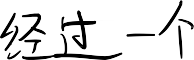 经过一个